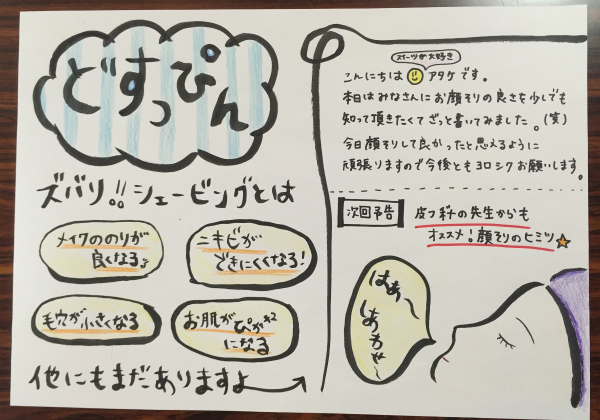 どすっぴん
ズバリ!!シェービングとは
メイクののりが
良くなる♪
ニキビが
できにくくなる!
毛穴が小さくなる
お肌がぴかぴか
になる
他にもまだありますよ
スイーツが大好き
こんにちは アタケです。
本日はみなさんにお顔そりの良さを少しでも
知って頂きたくてざっと書いてみました。(笑)
今日顔そりして良かったと思えるように
頑張りますので今後ともヨロシクお願いします。
次回予告
皮フ科の先生からも
オススメ!顔そりのヒミツ
はあ〜
しあわせ〜